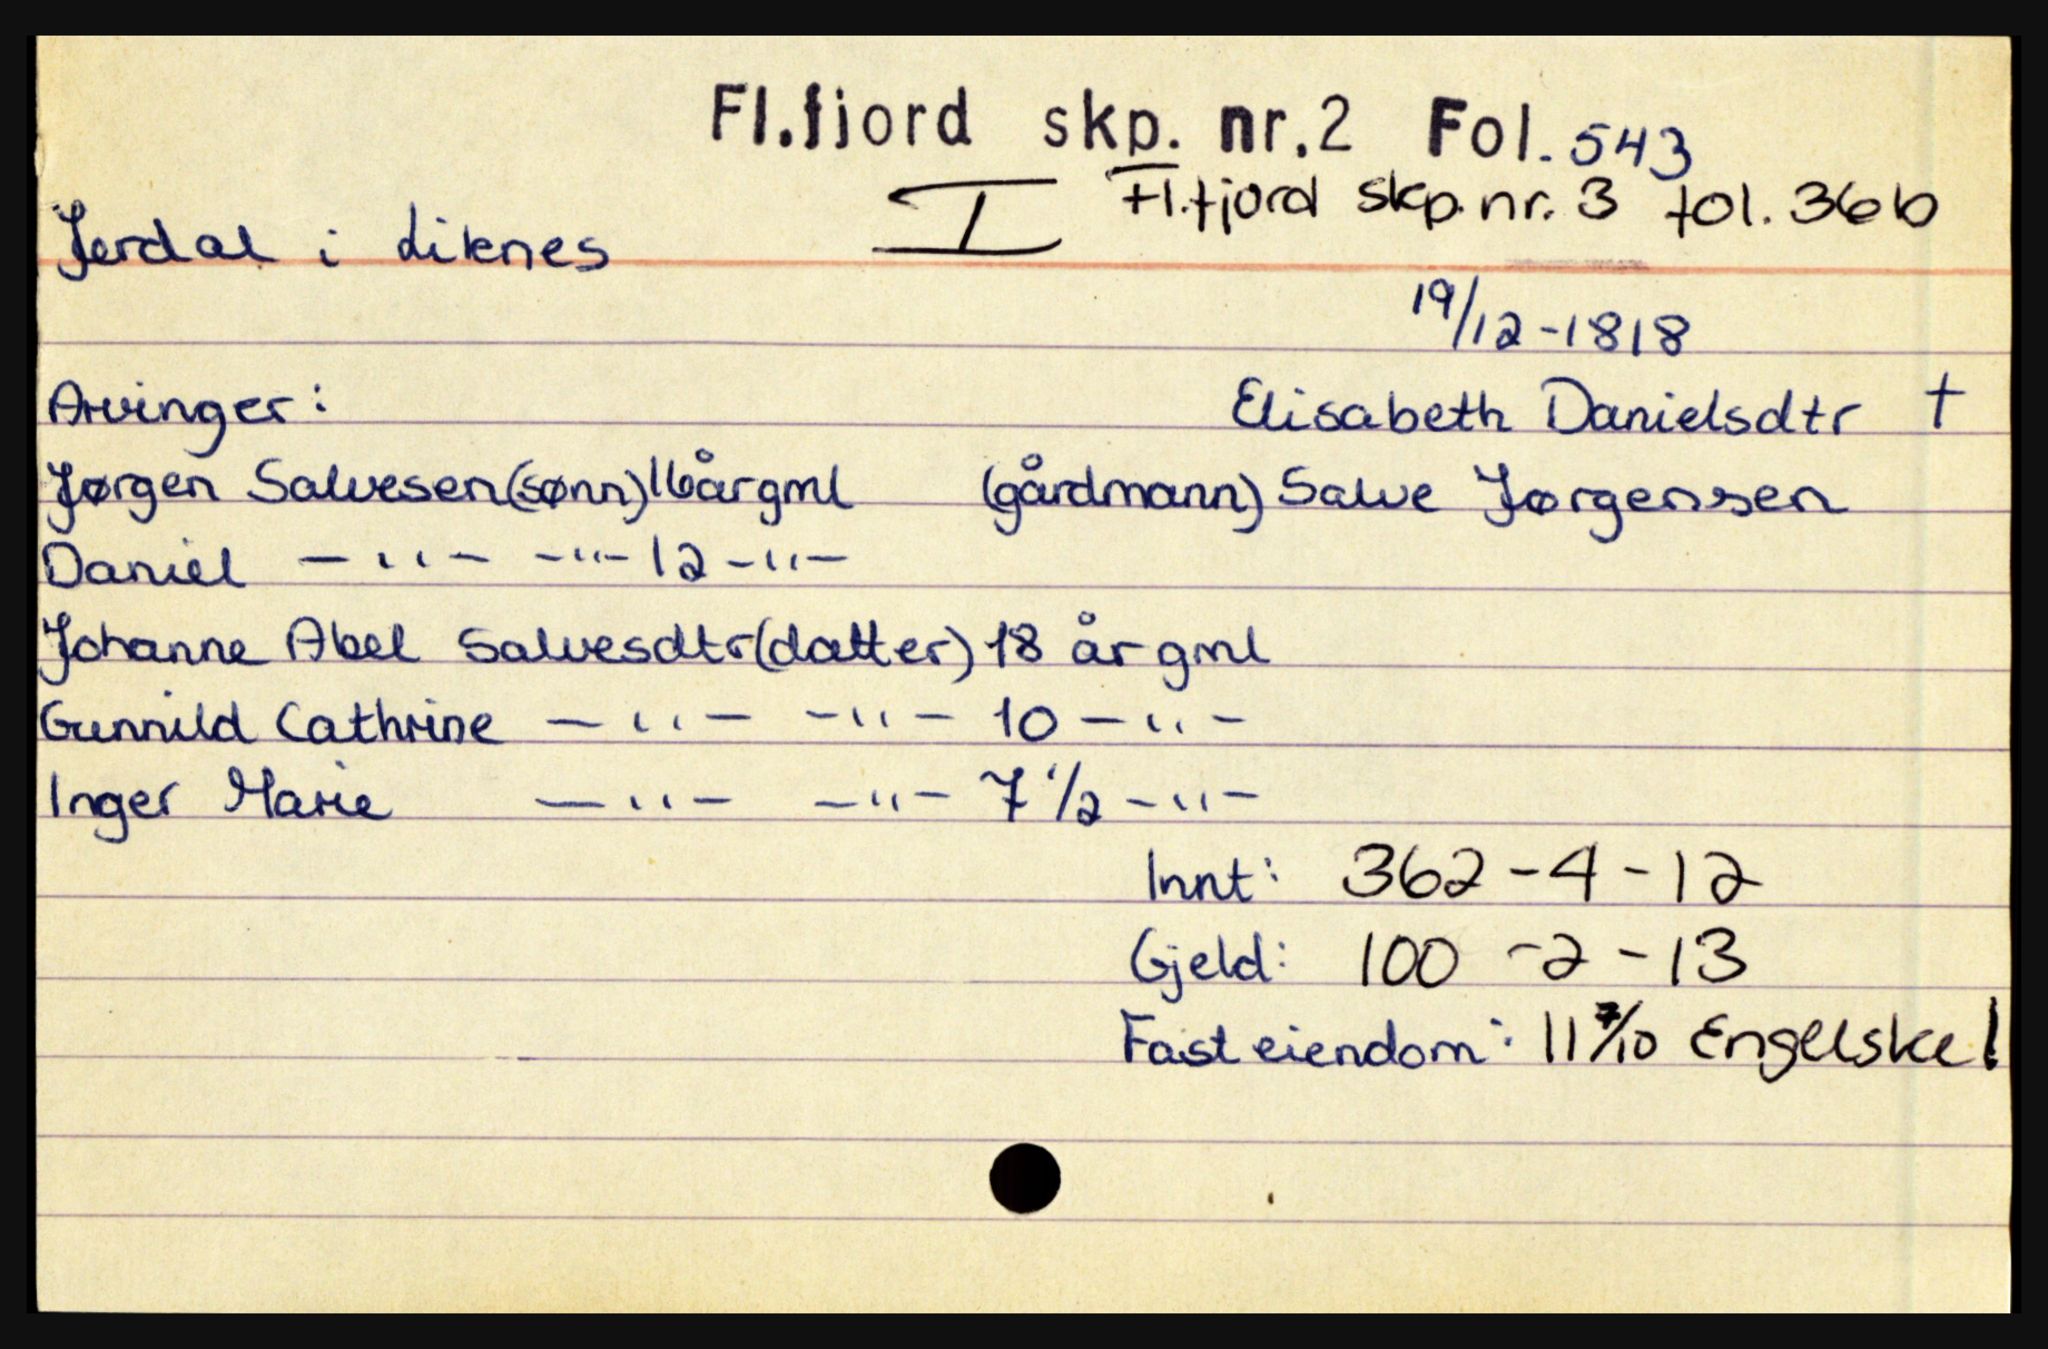 Fl.fjord skp. nr.2 Fol. 543
I Fl.fjord skp.nr. 3 fol. 36b
Jerdal i Liknes
19/12-1818
Arvinger: Elisabeth Danielsdtr †
Jørgen Salvesen(sønn)16årgml (gårdmann) Salve Jørgensen
Daniel -"- -"- 12 -"-
Johanne Abel Salvesdtr(datter) 18 år gml
Gunnild Cathrine -"- -"- 10 -"-
Inger Marie -"- -"- 7 1/2 -"-
Innt: 362-4-12
Gjeld: 100-2-13
Fast eiendom: 11 7/10 Engelske!